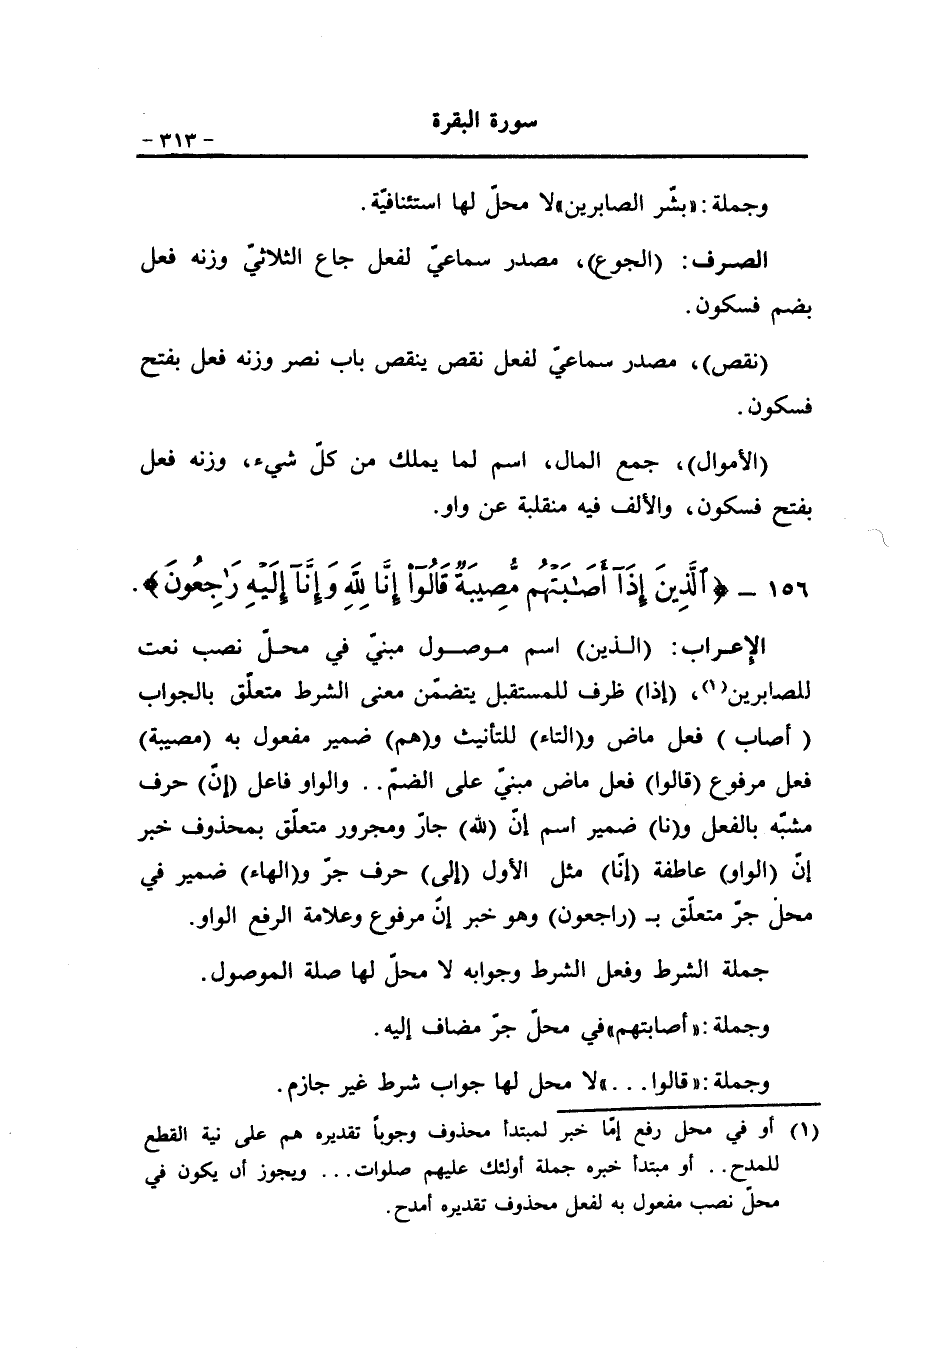 سورة البقرة
- ٣١٣ -
وجملة : «بشّر الصابرين» لا محلّ لها استئنافيّة .
الصرف : (الجوع) ، مصدر سماعيّ لفعل جاع الثلاثيّ وزنه فعل
بضم فسكون .
(نقص) ، مصدر سماعيّ لفعل نقص ينقص باب نصر وزنه فعل بفتح
فسكون .
(الأموال) ، جمع المال ، اسم لما يملك من كلّ شيء ، وزنه فعل
بفتح فسكون ، والألف فيه منقلبة عن واو.
١٥٦ - ﴿ٱلَّذِينَ إِذَآ أَصَٰبَتۡهُم مُّصِيبَةٞ قَالُوٓاْ إِنَّا لِلَّهِ وَإِنَّآ إِلَيۡهِ رَٰجِعُونَ﴾ .
الإعراب : (الذين) اسم موصول مبنيّ في محلّ نصب نعت
للصابرين(١) ، (إذا) ظرف للمستقبل يتضمّن معنى الشرط متعلّق بالجواب
( أصاب ) فعل ماض و(التاء) للتأنيث و(هم) ضمير مفعول به (مصيبة)
فعل مرفوع (قالوا) فعل ماض مبنيّ على الضمّ . . والواو فاعل (إنّ) حرف
مشبّه بالفعل و(نا) ضمير اسم إنّ (لله) جارّ ومجرور متعلّق بمحذوف خبر
إنّ (الواو) عاطفة (إنّا) مثل الأول (إلى) حرف جرّ و(الهاء) ضمير في
محلّ جرّ متعلّق بـ (راجعون) وهو خبر إنّ مرفوع وعلامة الرفع الواو.
جملة الشرط وفعل الشرط وجوابه لا محلّ لها صلة الموصول .
وجملة : «أصابتهم» في محلّ جرّ مضاف إليه .
وجملة : «قالوا . . .» لا محل لها جواب شرط غير جازم .
(١) أو في محل رفع إمّا خبر لمبتدأ محذوف وجوباً تقديره هم على نية القطع
للمدح . . أو مبتدأ خبره جملة أولئك عليهم صلوات . . . ويجوز أن يكون في
محلّ نصب مفعول به لفعل محذوف تقديره أمدح .